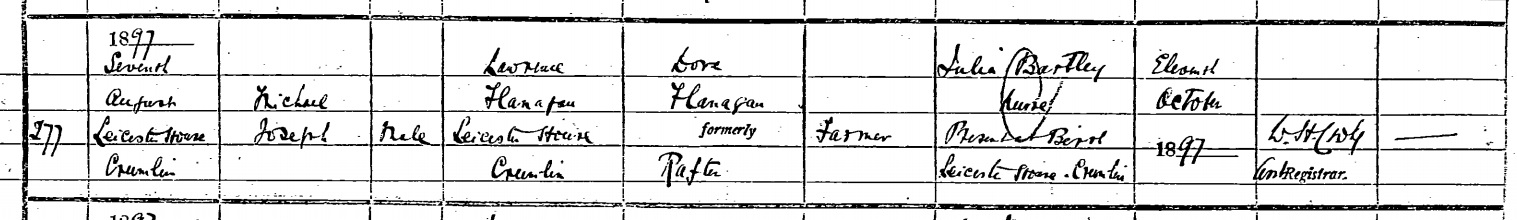 1897
Seventh
August
Leicester House
Crumlin
277
Michael
Joseph
Male
Lawrence
Flanagan
Leicester House
Crumlin
Dora
Flanagan
formerly
Rafter
Farmer
Julia Bartley
(nurse)
Present at Birth
Leicester House. Crumlin
Eleventh
October
1897
Registrar.
1897